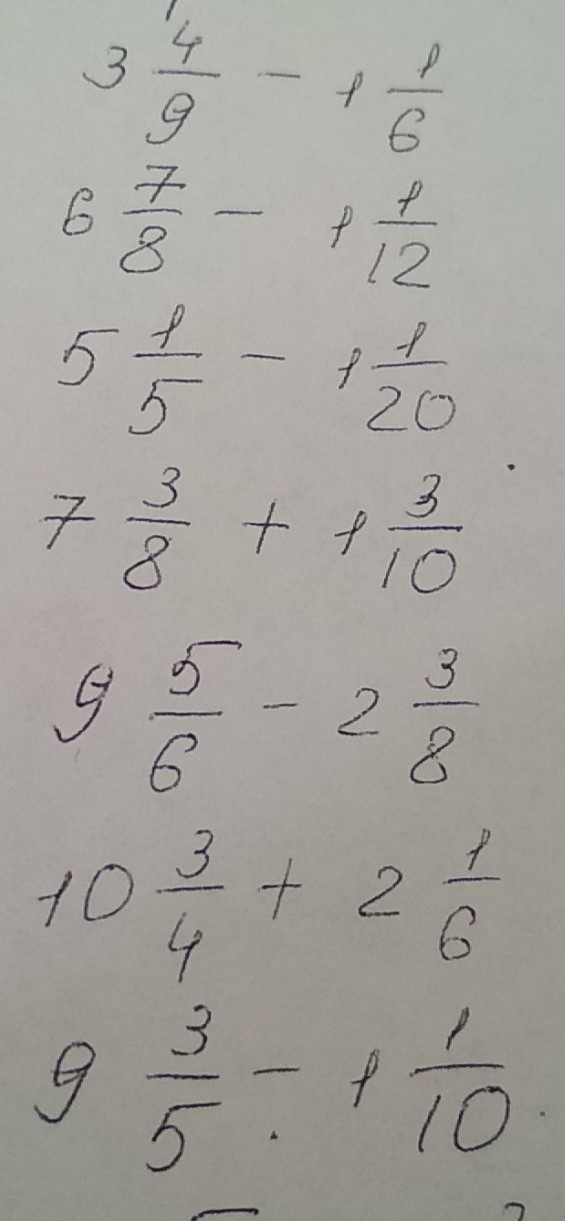 3 4/9 - 1 1/6
6 7/8 - 1 1/12
5 1/5 - 1 1/20
7 3/8 + 1 3/10
9 5/6 - 2 3/8
10 3/4 + 2 1/6
9 3/5 - 1 1/10